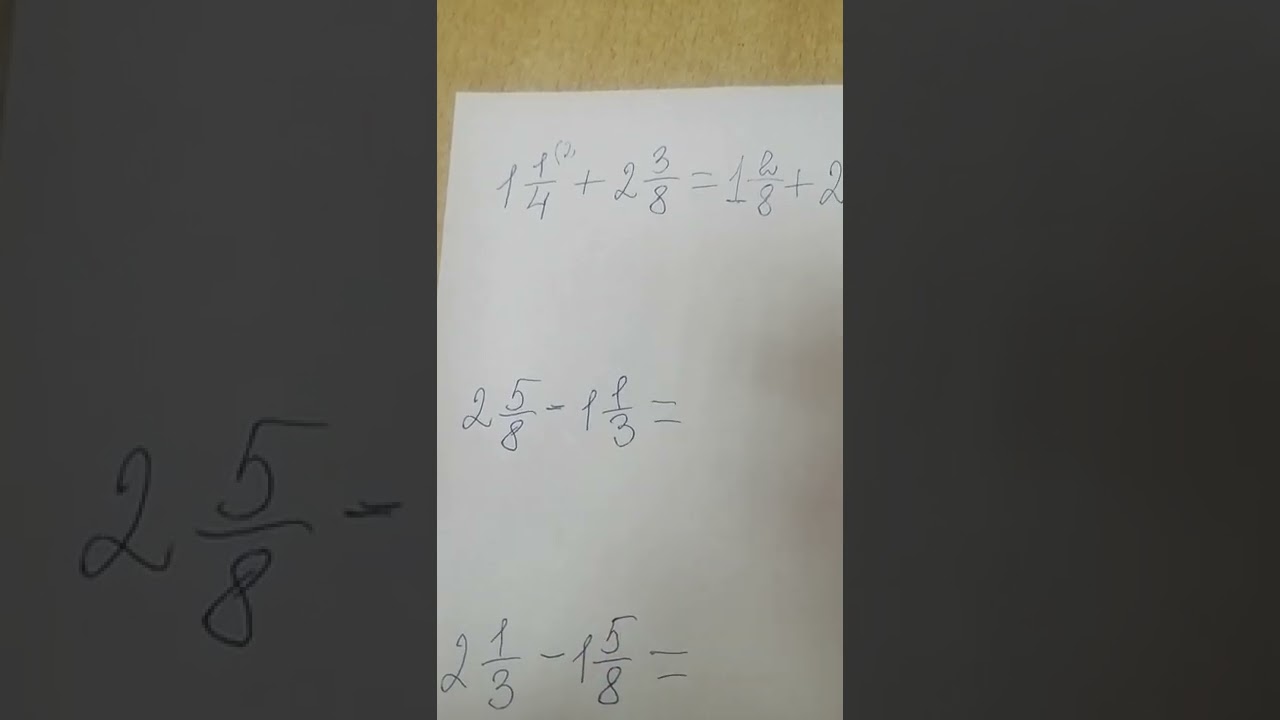 1 1/4 (2) + 2 3/8 = 1 2/8 + 2
2 5/8 - 1 1/3 =
2 1/3 - 1 5/8 =
2 5/8 -